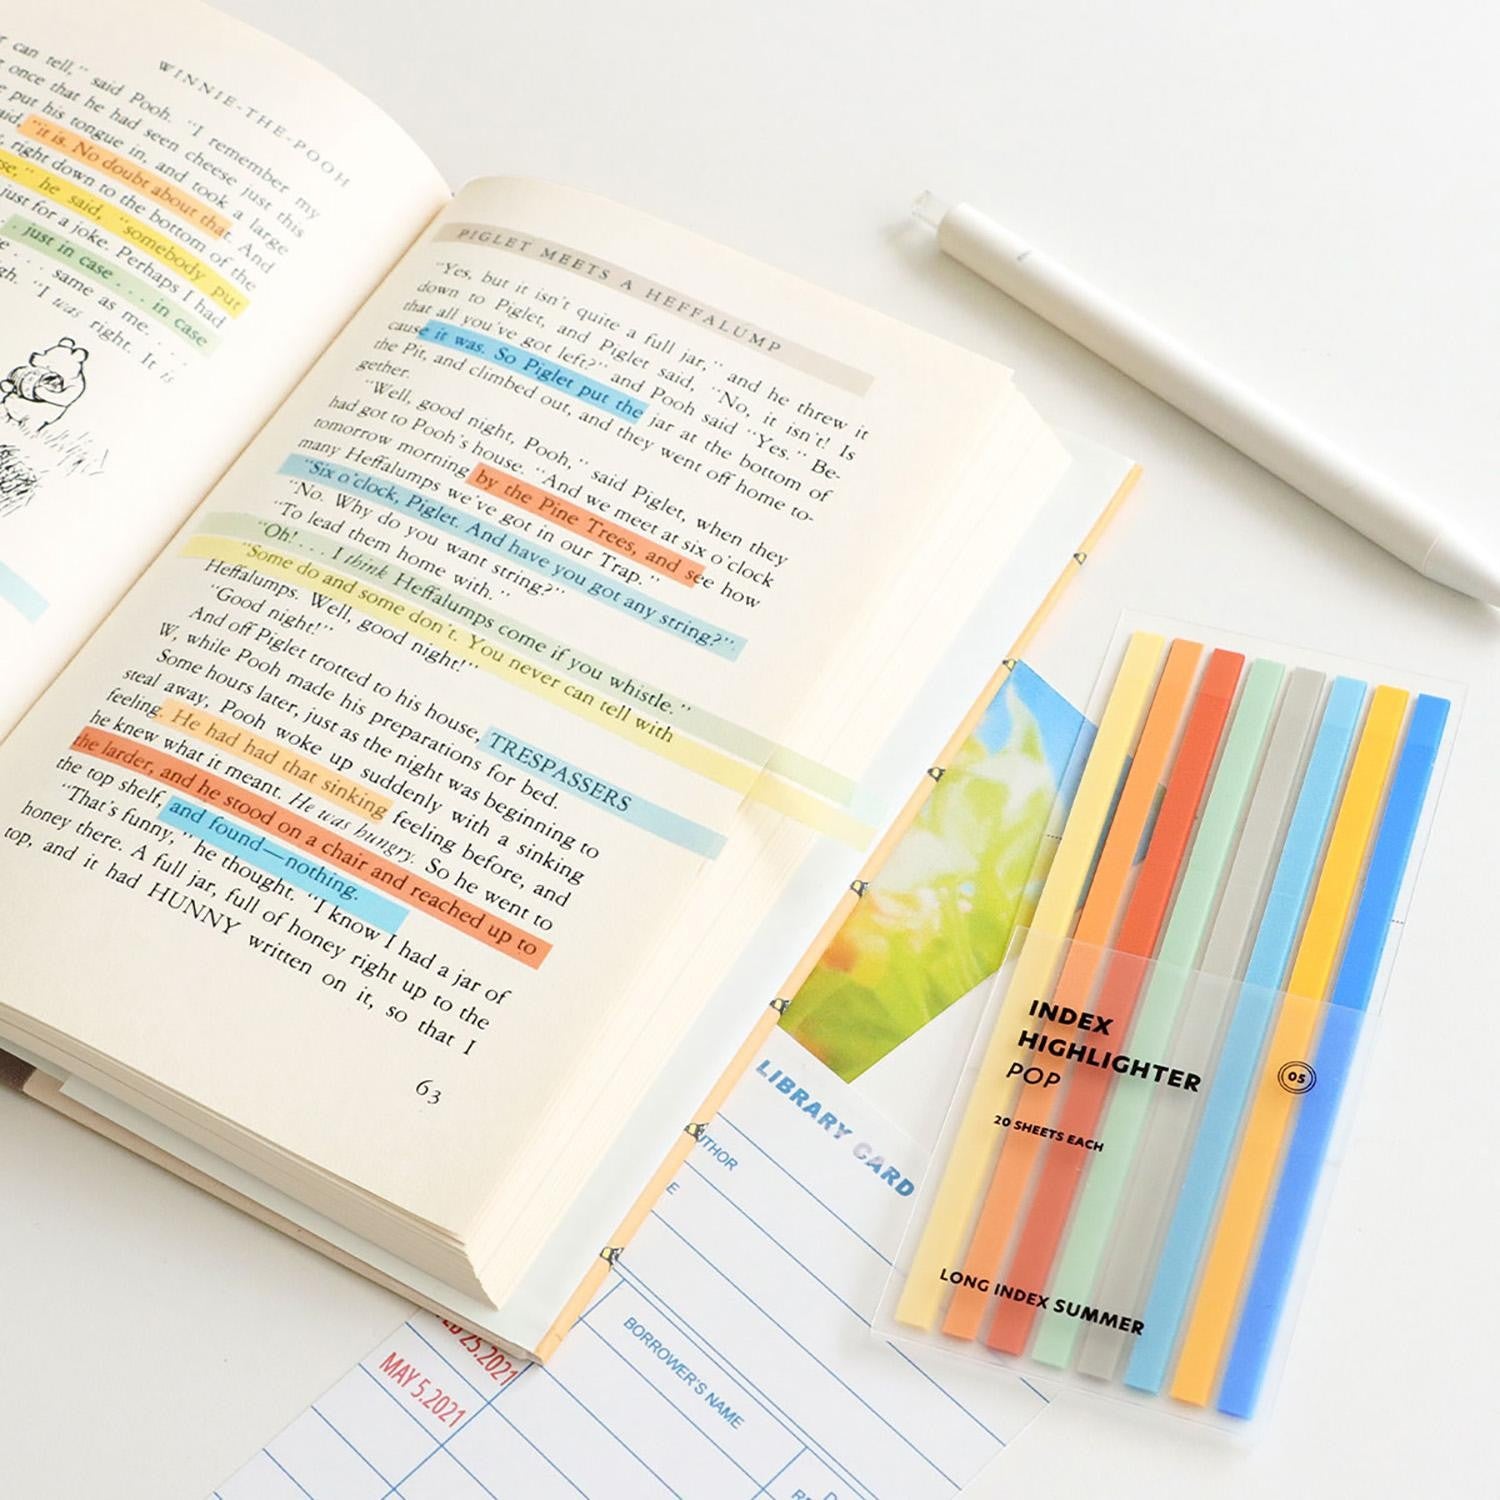 WINNIE-THE-POOH
can tell," said Pooh. "I remember my
once that he had seen cheese just this
put his tongue in, and took a large
"it is. No doubt about that. And
right down to the bottom of the
he said, "somebody put
just for a joke. Perhaps I had
. just in case . . . in case
. . . . same as me. . . .
"I was right. It is
PIGLET MEETS A HEFFALUMP
"Yes, but it isn't quite a full jar," and he threw it
down to Piglet, and Piglet said, "No, it isn't! Is
that all you've got left?" and Pooh said "Yes." Be-
cause it was. So Piglet put the jar at the bottom of
the Pit, and climbed out, and they went off home to-
gether.
"Well, good night, Pooh," said Piglet, when they
had got to Pooh's house. "And we meet at six o'clock
tomorrow morning by the Pine Trees, and see how
many Heffalumps we've got in our Trap."
"Six o'clock, Piglet. And have you got any string?"
"No. Why do you want string?"
"To lead them home with."
"Oh! . . . I think Heffalumps come if you whistle."
"Some do and some don't. You never can tell with
Heffalumps. Well, good night!"
"Good night!"
And off Piglet trotted to his house, TRESPASSERS
W, while Pooh made his preparations for bed.
Some hours later, just as the night was beginning to
steal away, Pooh woke up suddenly with a sinking
feeling. He had had that sinking feeling before, and
he knew what it meant. He was hungry. So he went to
the larder, and he stood on a chair and reached up to
the top shelf, and found—nothing.
"That's funny," he thought. "I know I had a jar of
honey there. A full jar, full of honey right up to the
top, and it had HUNNY written on it, so that I
63
INDEX
HIGHLIGHTER
POP
05
20 SHEETS EACH
LONG INDEX SUMMER
LIBRARY CARD
BORROWER'S NAME
25.2021
MAY 5.2021